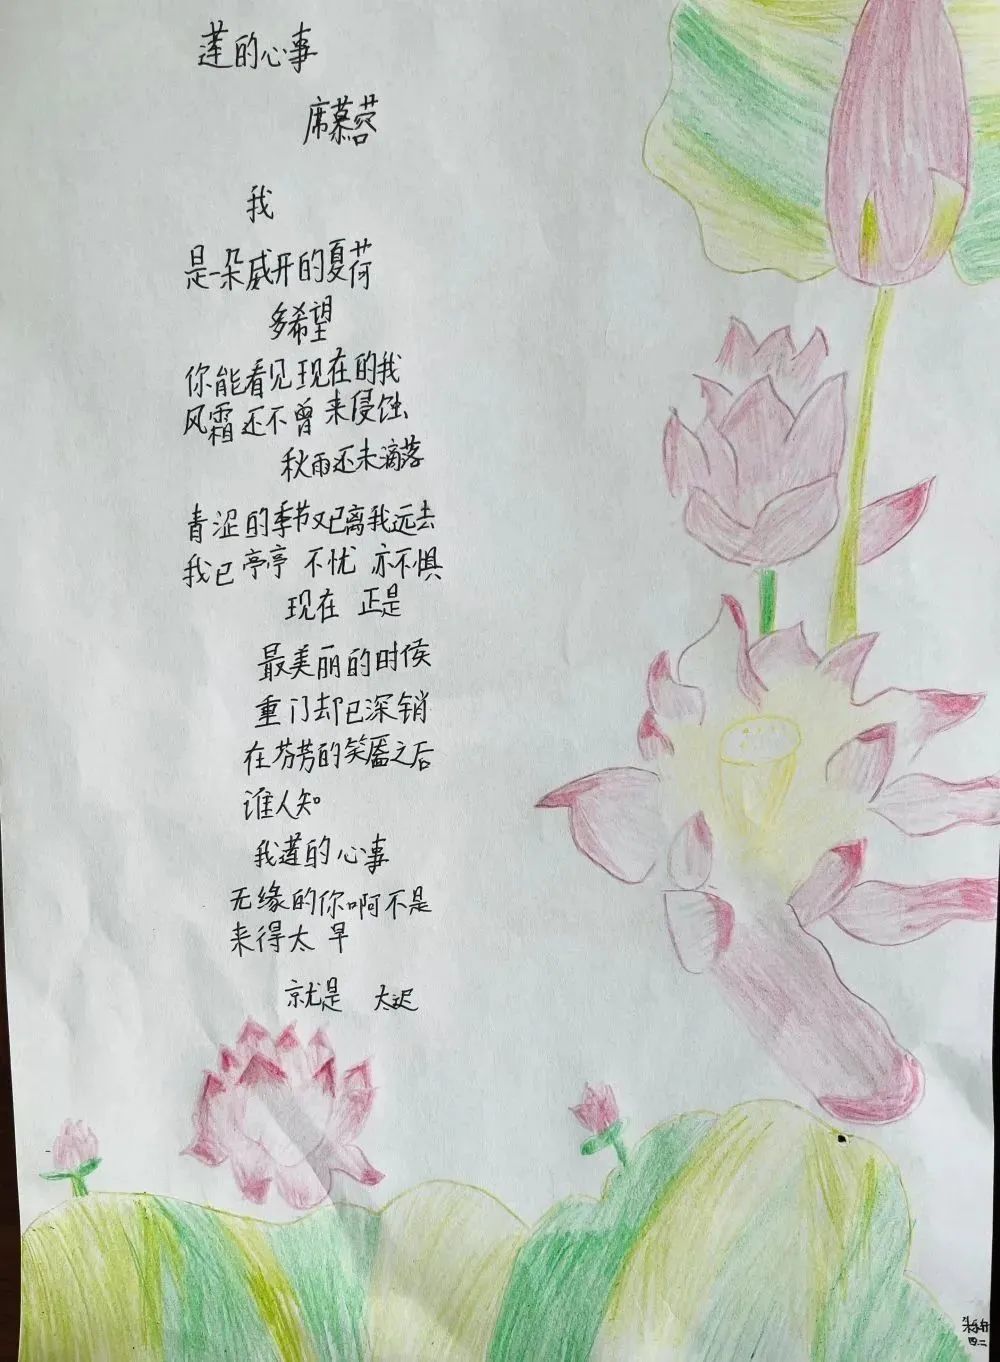 莲的心事
席慕蓉
我
是一朵盛开的夏荷
多希望
你能看见现在的我
风霜还不曾来侵蚀
秋雨还未滴落
青涩的季节又已离我远去
我已亭亭 不忧 亦不惧
现在 正是
最美丽的时候
重门却已深销
在芬芳的笑靥之后
谁人知
我莲的心事
无缘的你啊不是
来得太 早
就是 太迟
四二